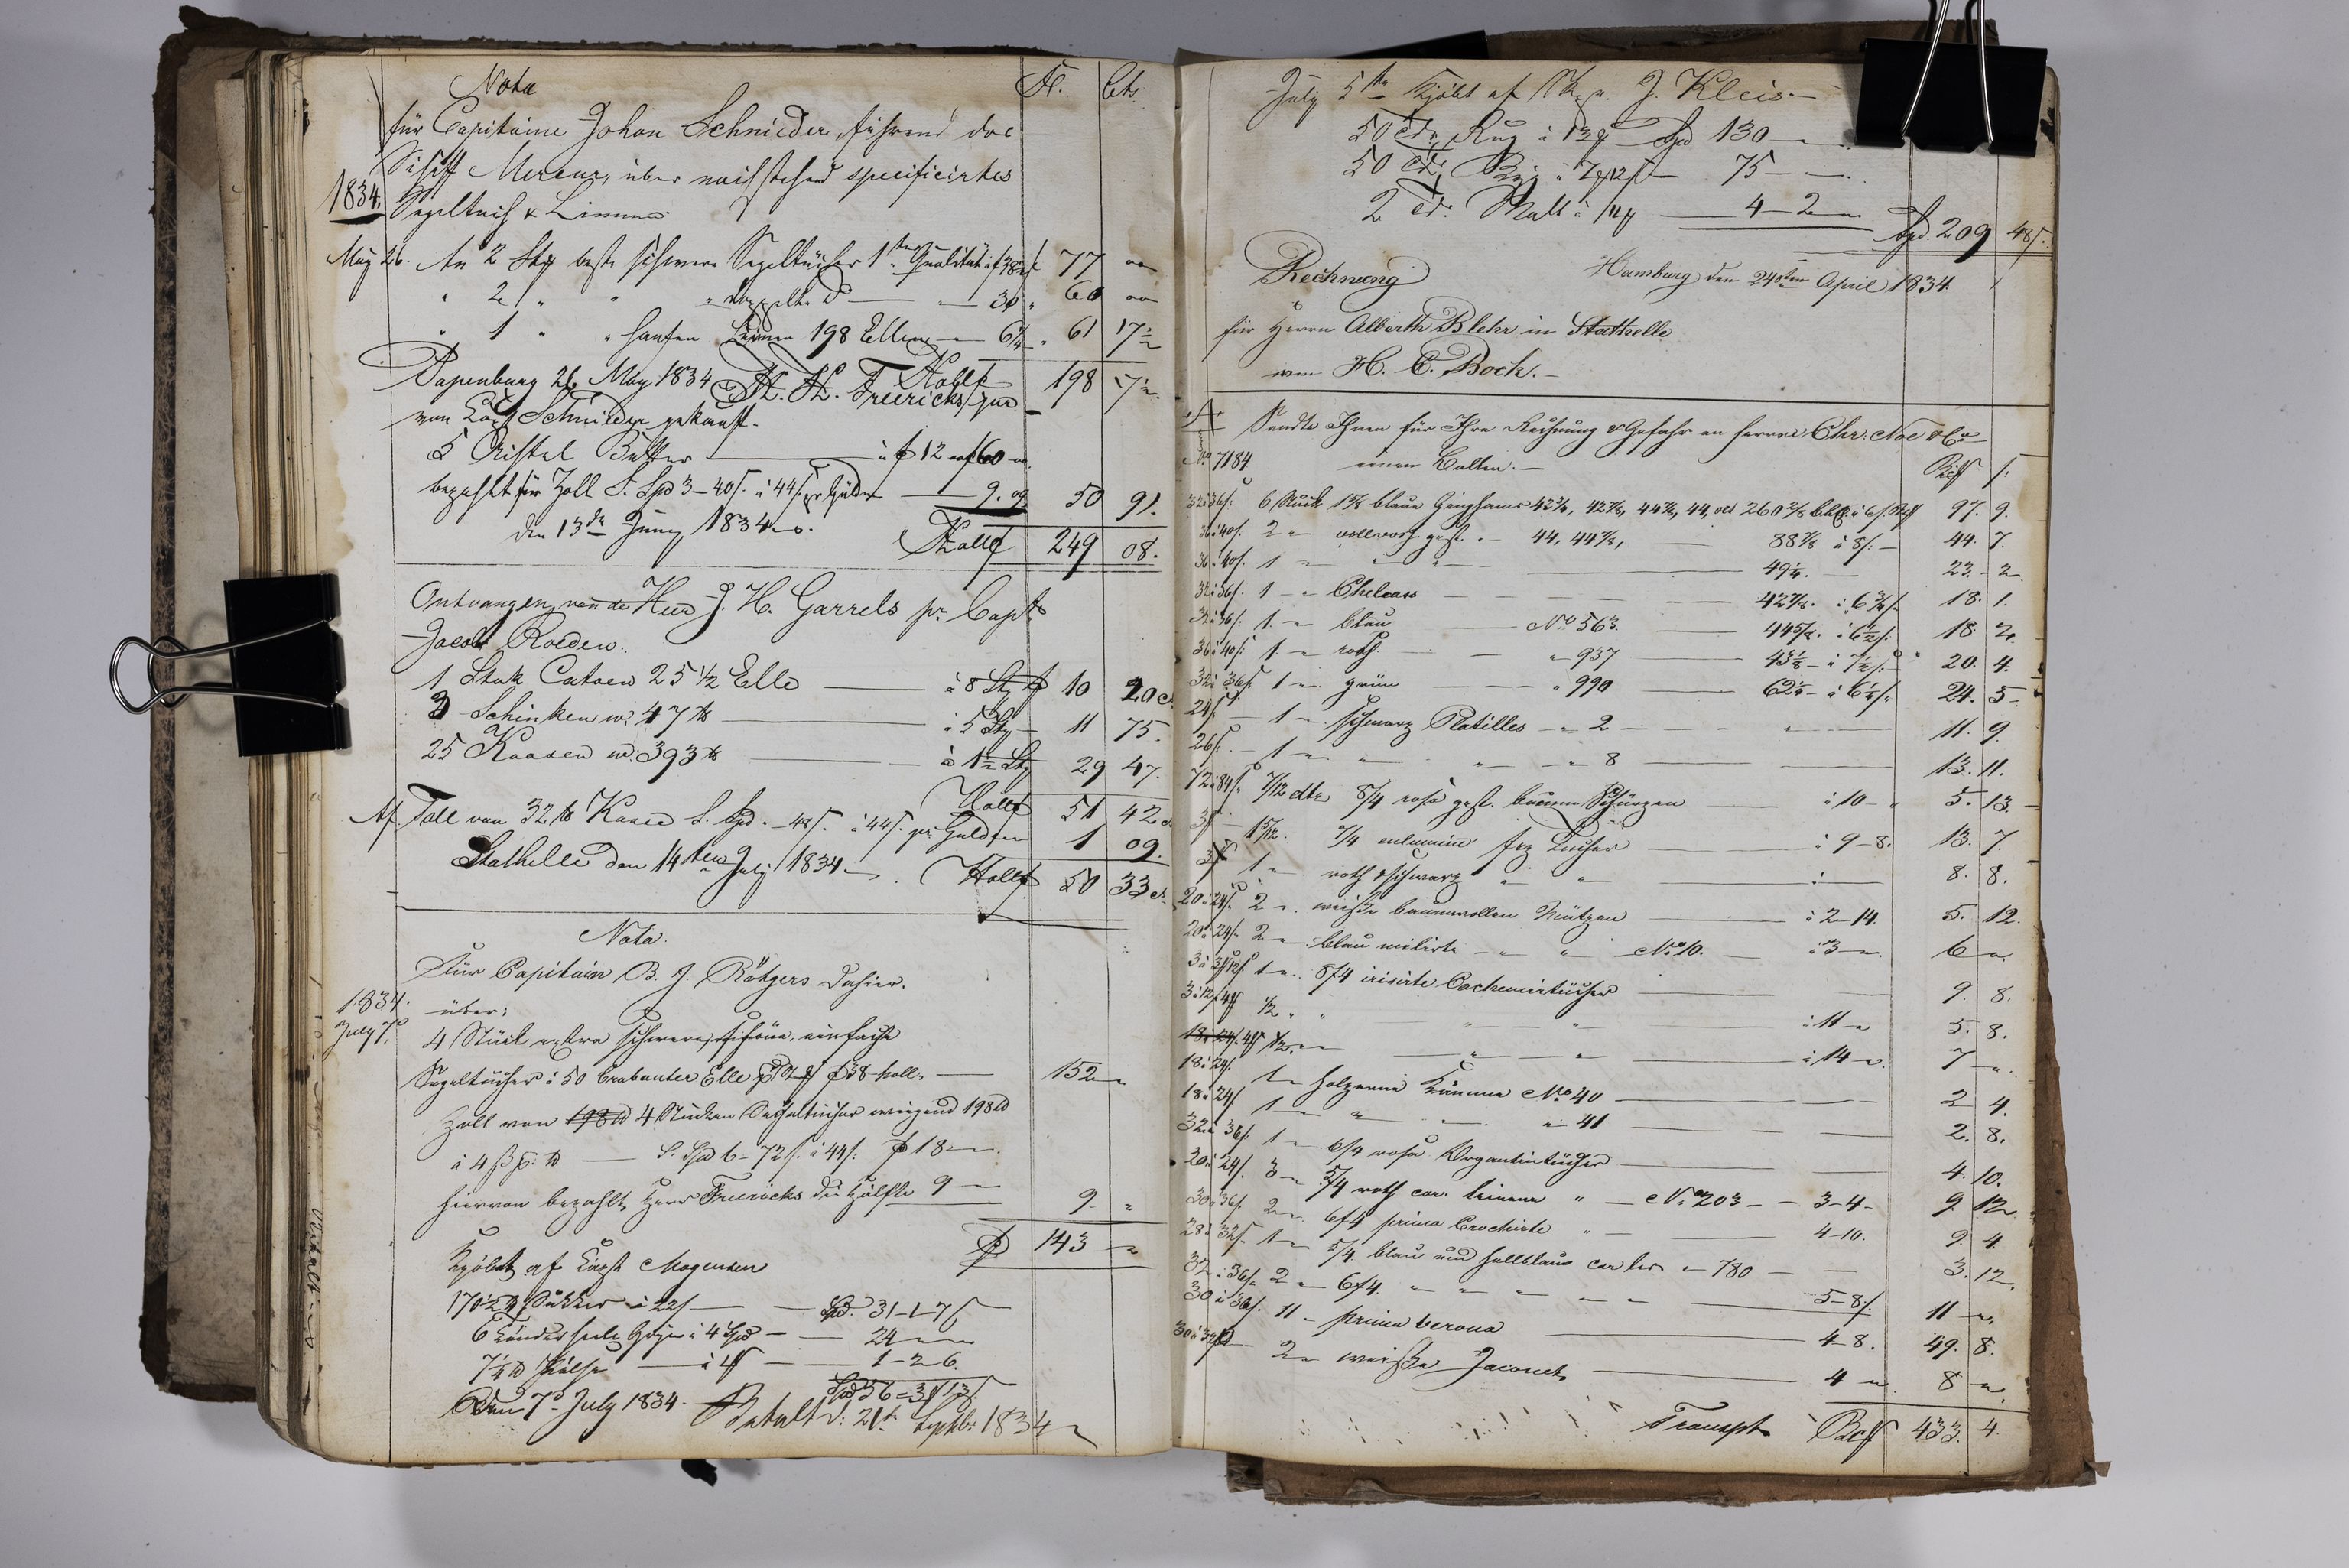 Nota Fl. Cts.
für Capitaine Johan Schnieder, führend das
Schiff Mercur, über nachstehend specificirtes
1834. Segeltuch & Linnen
May 26. An 2 Stk beste schwere Segeltücher 1ter Qualität à f 38½ 77 "
" 2 " " " doppelte do — 30 " 60 "
" 1 " " hanfen Linnen 198 Ellen — 6¼ " 61 17½
Papenburg 26 May 1834 H. H. Freericks jun Hollf 198 17½
von Capt Schnieder gekauft.
5 Kistel Butter — à f 12 f 60 "
bezahlt für Zoll S. Spd 3-40/. à 44/. pr Gülden — 9.09 50 91.
den 13de Juny 1834. Hollf 249 08.
Ontvangen van de Heer J. H. Garrels pr Capt
Jacob Roeden.
1 Stuk Catoen 25 1/2 Elle — à 8 Stv f 10 20 c.
3 Schinken w. 47 ℔ — à 5 Stv — 11 75.
25 Kaasen w. 393 ℔ — à 1½ Stv 29 47.
Hollf 51 42 c.
Af Toll van 32 ℔ Kaase S. Spd. - 48/. à 44/. pr. Gulden 1 09.
Stathelle den 14ten July 1834 Hollf 50 33 ct.
Nota.
Für Capitain B. J. Rötgers dahier.
1834. über:
July 7. 4 Stück extra schwere, schöne, einfache
Segeltücher à 50 brabanter Elle f 38 holl. — 152 "
Zoll von 198 ℔ 4 Stücken Segeltücher wiegend 198 ℔
à 4 ß p: ℔ — S. Spd 6-72/. à 44/. f 18 —
hiervon bezahlt Herr Freericks die Hälfte 9 — 9. "
f 143 "
Kjöbt af Capt Mogensen
170½ ℔ Sukker à 22/ — Spd. 31-1-7/
6 Tönder Gryn à 4 Spd — 24 " "
7½ ℔ — à — 1-2-6.
Spd 56=3/13/
Den 7de July 1834. Betalt d: 21de Septbr: 1834
July 5te Kjöbt af J. Kleis.
50 Td. Rug à 13 Spd 130 —
50 Td. Byg à 7 12/ — 75 — —
2 Td: Malt à 11 — 4-2 — Spd. 209 48/.
Rechnung Hamburg den 24sten April 1834.
für Herrn Alberth Blehr in Stathelle
von H. C. Bock.
Sandte Ihnen für Ihre Rechnung & Gefahr an Herren Chr. Noe & Co
No 7184 einen Ballen. Bcß /.
32 à 36/. 6 Stück blaue Ginghams 42¾, 42⅞, 44⅞, 44, 97. 9.
36 à 40/. 2 " 44, 44⅞, — 88⅞ à 8/. — 44. 7.
36 à 40/. 1 " " — 49¼. — 23. 2
32 à 36/. 1 " — 42⅞. 18. 1.
32 à 36/. 1 " blau — No 563. — 44 à 6½/. 18. 2.
36 à 40/. 1 " roth — " 937 — 43⅛ à 7½/. 20. 4.
32 à 36/. 1 " grün — " 990 — 62¼ à 6¼/. 24. 5
24/. — 1 " schwarz Platilles — 2 — 11. 9.
26/. — 1 " " " — 8 — 13. 11.
72 à 84/. 7/12 dtz 8/4 rosa gest. baumw Schürzen — à 10 — 5. 13.
7/4 Tücher — à 9-8. 13. 7.
1 " roth & schwarz " " — 8. 8.
20 à 24/. 2 " weiße baumwollen Mützen — à 2-14. 5. 12.
20 à 24/. 2 " blau melirte " " No 10. — à 3 — 6 "
1 " 8/4 irisirte Cachemirtücher — 9. 8.
1/2 " " " " — à 11 — 5. 8.
1/2 " " " " — à 14 — 7 "
18 à 24/. 1 " holzerne Kämme No 40 — 2 4.
18 à 24/. 1 " " " 41 — 2. 8.
32 à 36/. 1 " 6/4 rosa Organtintücher — 4. 10.
20 à 24/. 3 " 5/4 roth car. leinene " — No 203 — 3-4 — 9 12
30 à 36/. 2 " 6/4 prima " — 4-10. 9. 4.
28 à 32/. 1 " 5/4 blau und hellblau car — 780 — 3. 12.
32 à 36/. 2 " 6/4 " " " " — 5-8/. 11 "
30 à 36/. 11 " prima verona — 4-8. 49. 8.
2 " weiße Jaconets — 4 " 8 "
Transpt Bcß 433. 4.